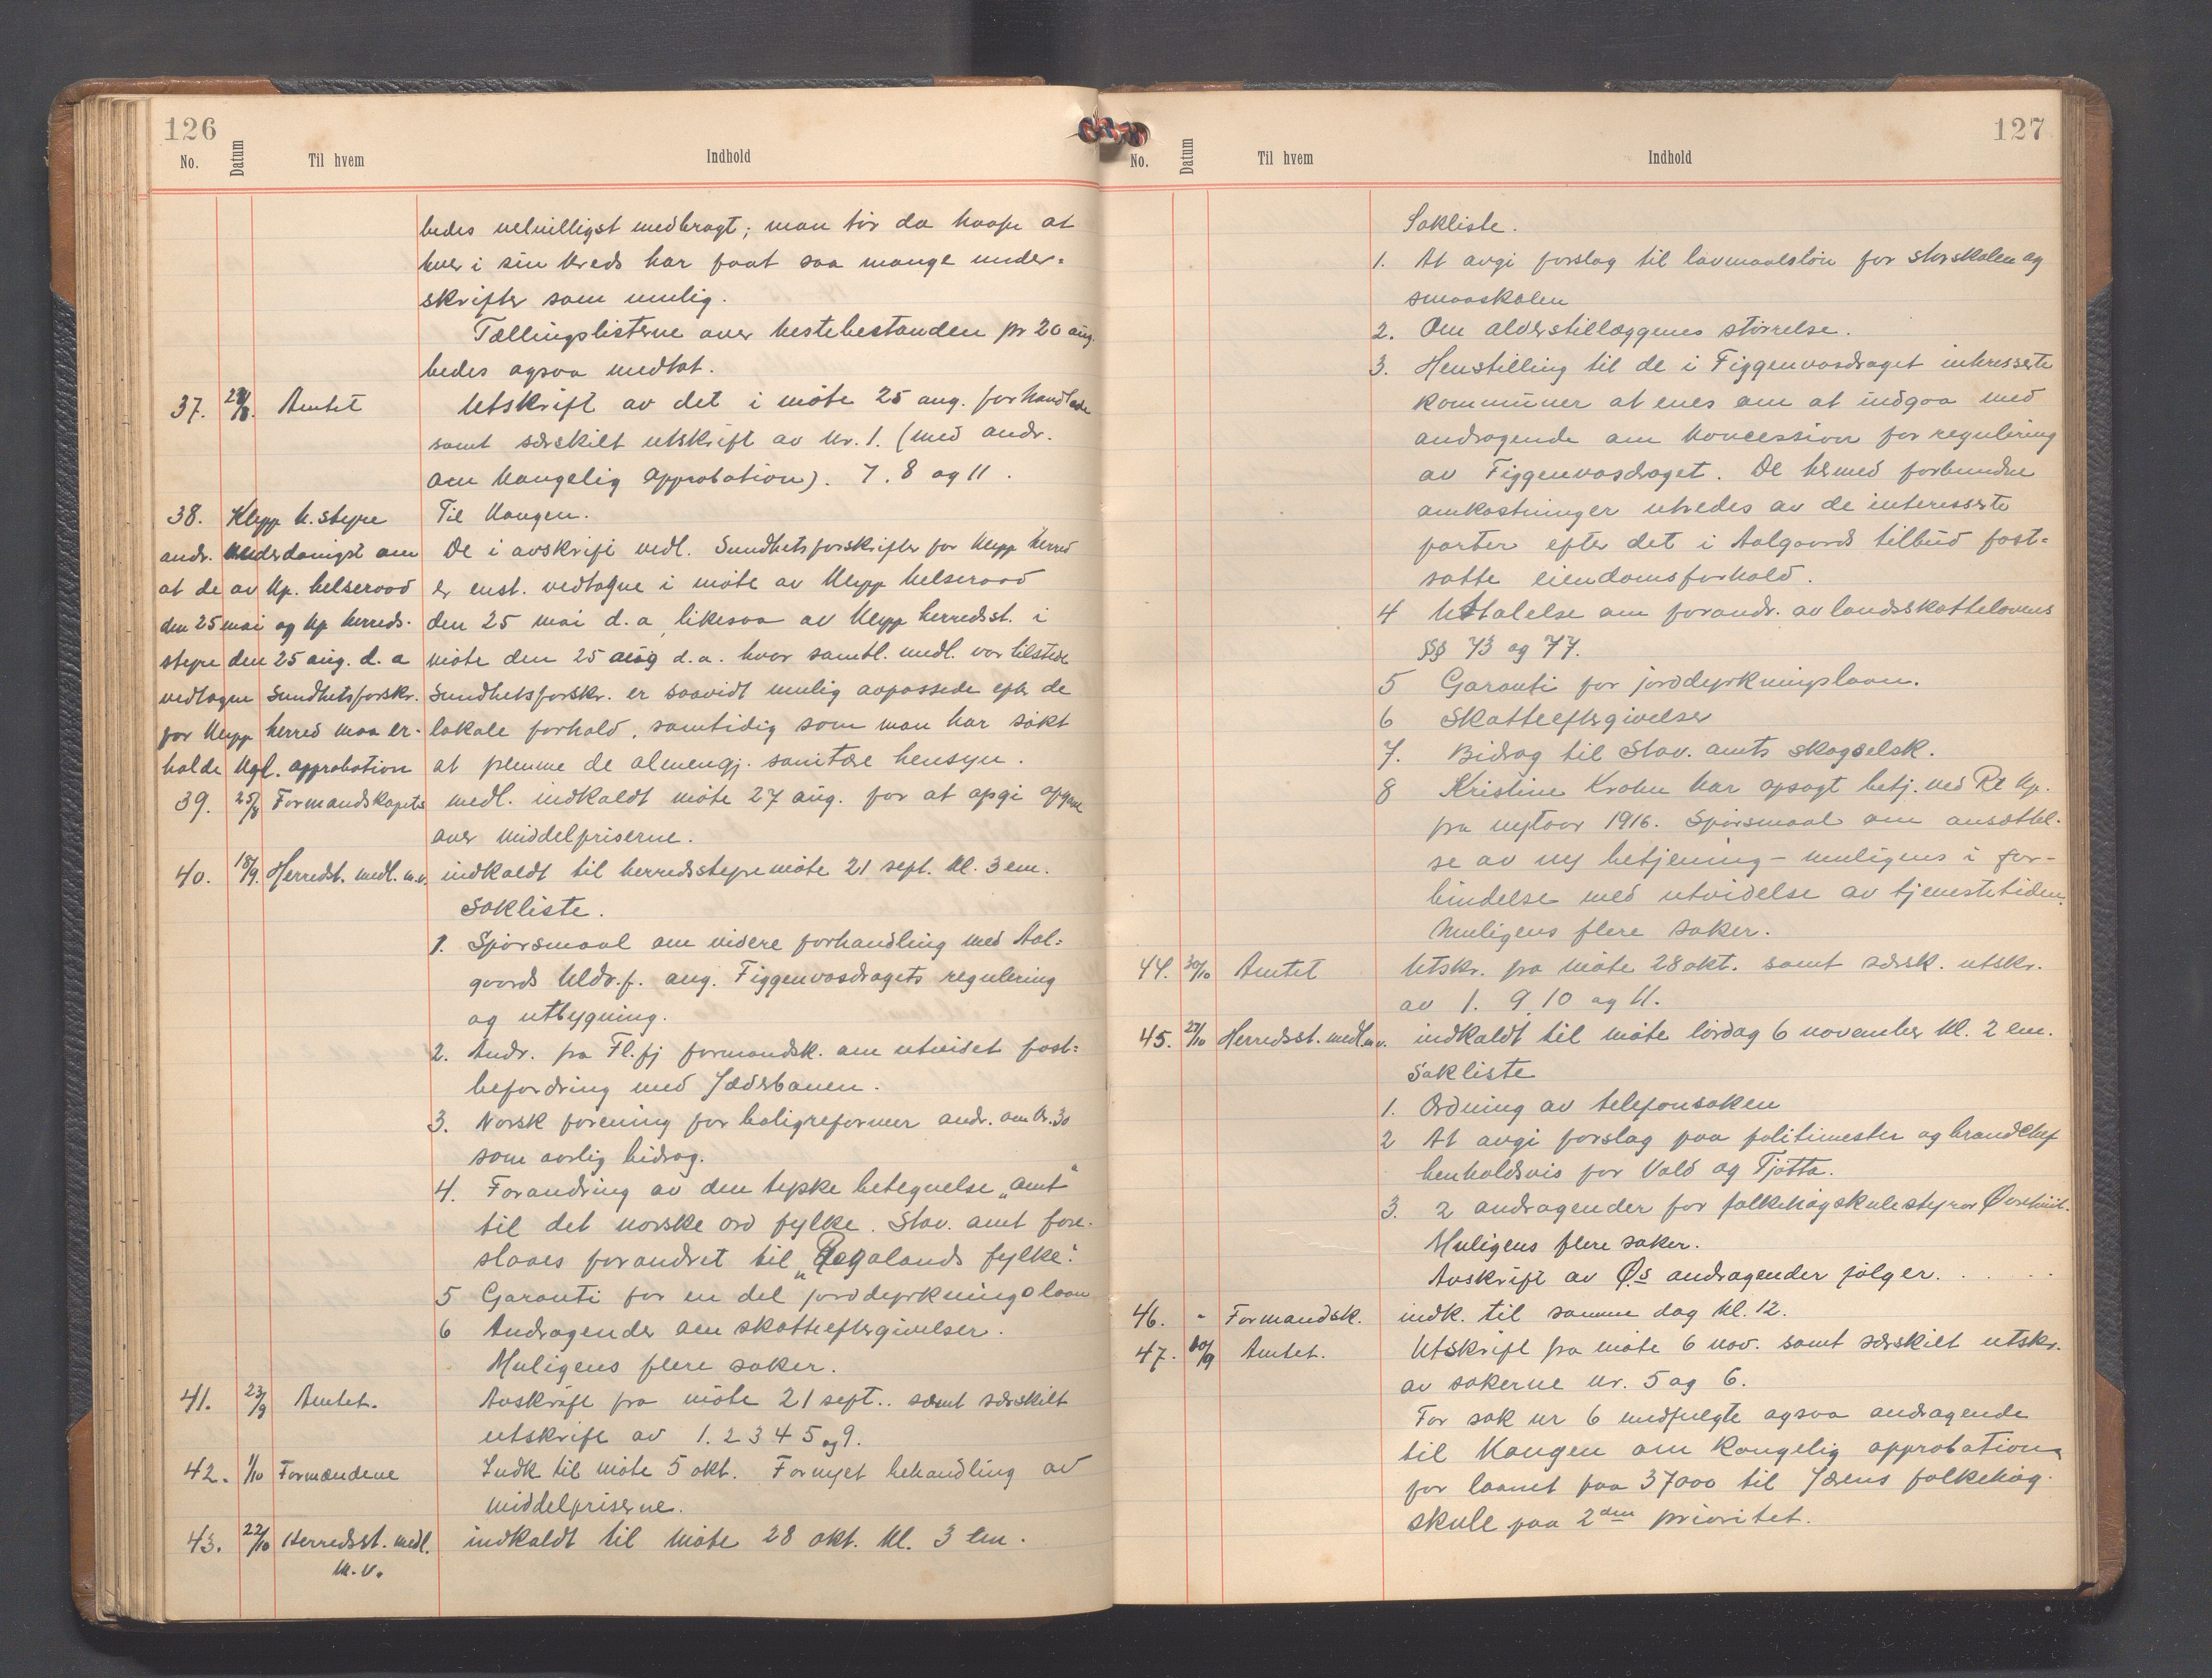 126
No. Datum Til hvem Indhold
bedes velvilligst medbragt; man tør da haape at
hver i sin kreds har faat saa mange under-
skrifter som mulig.
Tællingslisterne over hestebestanden pr 20 aug.
bedes ogsaa medtat.
37. 28/8. Amtet Utskrift av det i møte 25 aug. forhandlede
samt særskilt utskrift av nr. 1. (med andr.
om kongelig approbation). 7. 8 og 11.
38. Klepp h.styre Til Kongen.
andr. underdanigst om De i avskrift vedl. Sundhetsforskrifter for Klepp herred
at de av Kp. helseraad er enst. vedtagne i møte av Klepp helseraad
den 25 mai og Kp herreds- den 25 mai d.a, likesaa av Klepp herredsst. i
styre den 25 aug. d. a møte den 25 aug d.a. hvor samtl. medl. var tilstede
vedtagne Sundhetsforskr. Sundhetsforskr. er saavidt mulig avpassede efter de
for Klepp herred maa er- lokale forhold, samtidig som man har søkt
holde kgl. approbation at fremme de almengj. sanitære hensyn.
39. 25/8 Formandskapets medl. indkaldt møte 27 aug. for at opgi opgave
over middelpriserne.
40. 18/9. Herredst. medl. m.v. indkaldt til herredsstyremøte 21 sept. kl. 3 em.
Sakliste.
1. Spørsmaal om videre forhandling med Aal-
gaards Uldv.f. ang. Figgenvasdragets regulering
og utbygning.
2. Andr. fra Fl.fj formandsk. om utvidet post-
befordring med Jæderbanen.
3. Norsk forening for boligreformer andr. om kr. 30
som aarlig bidrag.
4. Forandring av den tyske betegnelse "amt"
til det norske ord fylke. Stav. amt fore-
slaaes forandret til "Rogalands fylke".
5 Garanti for en del jorddyrkningslaan
6 Andragender om skatteeftergivelser.
Muligens flere saker.
41. 23/9 Amtet. Avskrift fra møte 21 sept.. samt særskilt
utskrift av 1. 2 3 4 5 og 9.
42. 1/10 Formændene Indk til møte 5 okt. Fornyet behandling av
middelpriserne.
43. 22/10 Herredsst. medl. indkaldt til møte 28 okt. kl. 3 em.
m.v.
127
No. Datum Til hvem Indhold
Sakliste.
1. At avgi forslag til lavmaalsløn for storskolen og
smaaskolen
2. Om alderstillæggenes størrelse.
3. Henstilling til de i Figgenvasdraget interesserte
kommuner at enes om at indgaa med
andragende om koncession for regulering
av Figgenvasdraget. De hermed forbundne
omkostninger utredes av de interesserte
parter efter det i Aalgaards tilbud fast-
satte eiendomsforhold.
4 Uttalelse om forandr. av landsskattelovens
§§§ 73 og 77.
5 Garanti for jorddyrkningslaan.
6 Skatteeftergivelser
7. Bidrag til Stav. amts skogselsk.
8 Kristine Krohn har opsagt betj. ved Rt Kp.
fra nytaar 1916. Spørsmaal om ansættel-
se av ny betjening – muligens i for-
bindelse med utvidelse av tjenestetiden.
Muligens flere saker.
44. 30/10 Amtet Utskr. fra møte 28 okt. samt særsk. utskr.
av 1. 9, 10 og 11.
45. 27/10 Herredsst. medl.m.v. indkaldt til møte lørdag 6 november kl. 2 em.
Sakliste
1. Ordning av telefonsaken
2 At avgi forslag paa politimester og brandchef
henholdsvis for Vold og Tjøtta.
3. 2 andragender for folkehøgskulestyrar
Muligens flere saker.
Avskrift av Ø.s andragender følger. . . . .
46. " Formandsk. indk. til samme dag kl. 12.
47. Amtet. Utskrift fra møte 6 nov. samt særskilt utskr.
av sakerne nr. 5 og 6.
For sak nr 6 medfulgte ogsaa andragende
til Kongen om kongelig approbation
for laanet paa 37000 til Jærens folkehøg-
skule paa 2den prioritet.